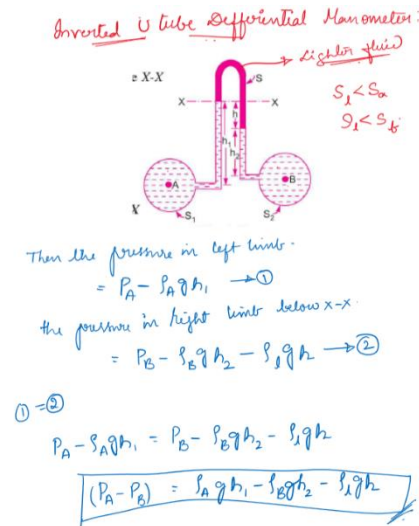 Inverted U tube Defferential Manometer:
Lighter fluid
e X-X
S
X
X
S₁ < Sₐ
S₁ < S_b
h
h₁
h₂
A
B
X
S₁
S₂
Then the pressure in left limb.
= P_A - ρ_A g h₁ → ①
the pressure in right limb below x-x
= P_B - ρ_B g h₂ - ρ_l g h → ②
① = ②
P_A - ρ_A g h₁ = P_B - ρ_B g h₂ - ρ_l g h
(P_A - P_B) = ρ_A g h₁ - ρ_B g h₂ - ρ_l g h